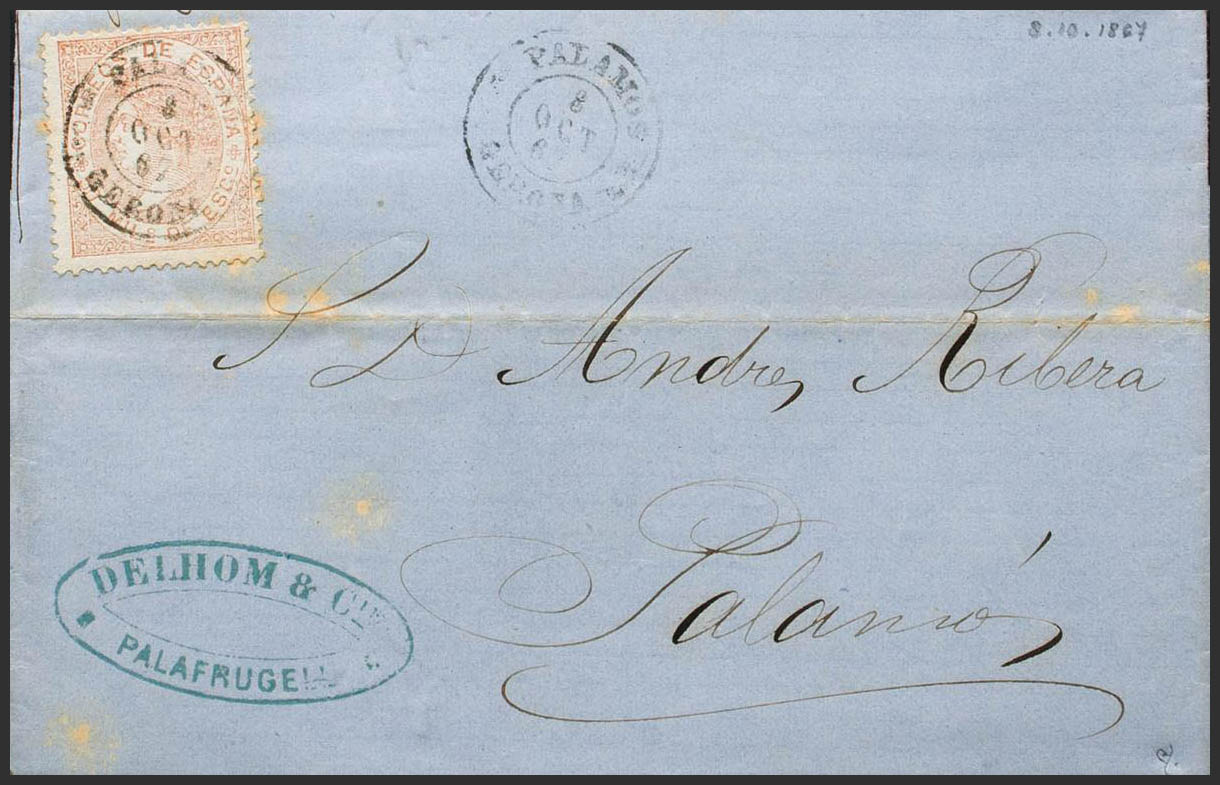 8.10.1867
CORREOS DE ESPAÑA
MILS DE ESCO
PALA
8
OCT
67
GERON
PALAMOS
8
OCT
67
GERONA
S D Andres Ribera
Palamós
DELHOM & CIE
PALAFRUGELL